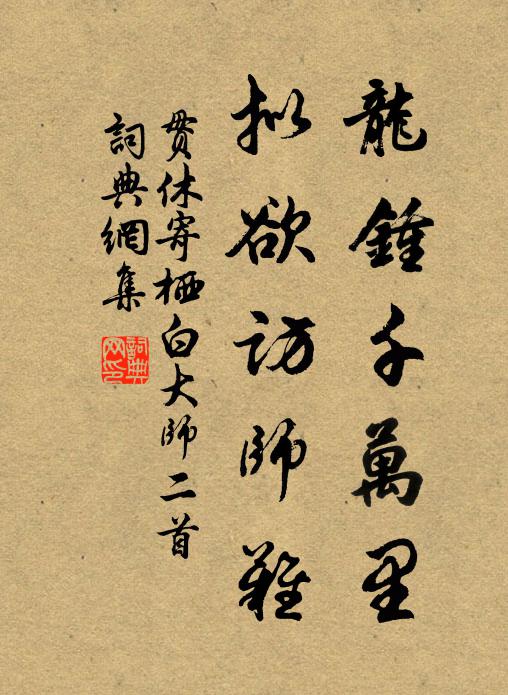 龍鍾千萬里
拟欲訪師難
貫休寄栖白大師二首
詞典網集
詞典网印